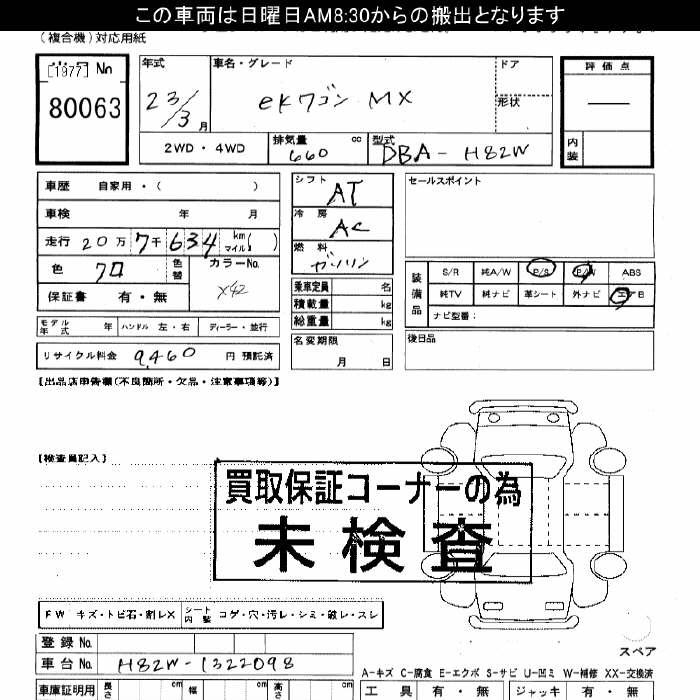 この車両は日曜日AM8:30からの搬出となります
(複合機)対応用紙
[1977] No
80063
年式 車名・グレード ドア 評価点
23/3月 eKワゴン MX 形状 —
2WD・4WD 排気量 660 cc 型式 DBA-H82W 内装
車歴 自家用・( )
車検 年 月
走行 20万7千634 km マイル( )
色 クロ 色替 カラーNo. X42
保証書 有・無
モデル年式 年 ハンドル 左・右 ディーラー・並行
リサイクル料金 9,460 円 預託済
シフト AT
冷房 AC
燃料 ガソリン
乗車定員 名
積載量 kg
総重量 kg
名変期限
月 日
セールスポイント
装備品 S/R 純A/W P/S P/W ABS
純TV 純ナビ 革シート 外ナビ エアB
ナビ型番:
後日品
【出品店申告欄(不良箇所・欠品・注意事項等)】
【検査員記入】
買取保証コーナーの為
未検査
FW キズ・トビ石・割レX シート内装 コゲ・穴・汚レ・シミ・破レ・スレ
登録No.
車台No. H82W-1322098
車庫証明用 長さ cm 幅 cm 高さ cm
スペア
A-キズ C-腐食 E-エクボ S-サビ U-凹ミ W-補修 XX-交換済
工具 有・無 ジャッキ 有・無